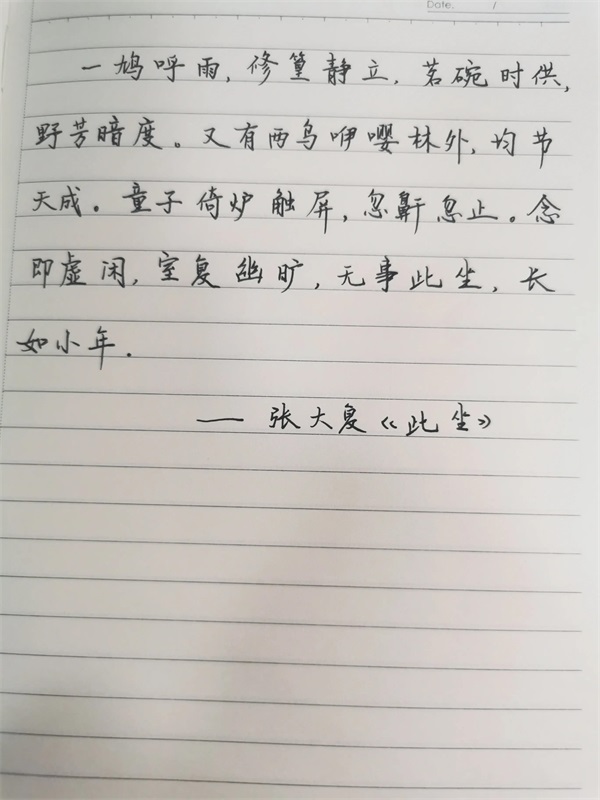 Date. /
一鸠呼雨,修篁静立,茗碗时供,
野芳暗度。又有两鸟咿嘤林外,均节
天成。童子倚炉触屏,忽鼾忽止。念
即虚闲,室复幽旷,无事此坐,长
如小年.
——张大复《此坐》